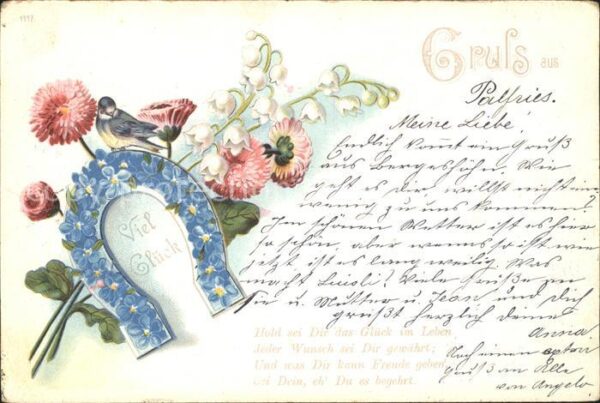 1117
Gruss aus
Palfries.
Meine Liebe!
Endlich komt ein gruß
aus Bergeshöhn. Wie
geht es dir willst nicht ein
wenig zu uns kommen?
Im schönen Wetter ist es hier
so schön, aber wenns so ist wie
jetzt ist es lang weilig. Was
macht Luisli? Viele grüße an
Sie u. Mutter u. Jean und Dich
grüßt herzlich deine
Anna.
Noch einen
gruß an Elle
von Angelo.
Viel
Glück
Hold sei Dir das Glück im Leben
Jeder Wunsch sei Dir gewährt;
Und was Dir kann Freude geben
Sei Dein, eh' Du es begehrt.